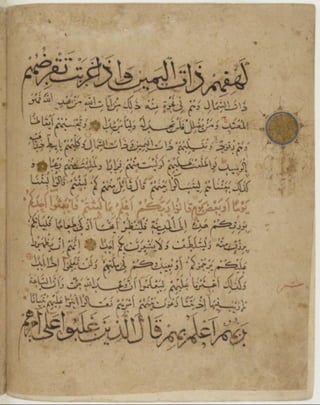 كهفهم ذات اليمين واذا غربت تقرضهم
ذات الشمال وهم في فجوة منه ذلك من ايات الله من يهد الله فهو
المهتد ومن يضلل فلن تجد له وليا مرشدا وتحسبهم ايقاظا
وهم رقود ونقلبهم ذات اليمين وذات الشمال وكلبهم باسط ذراعيه
بالوصيد لو اطلعت عليهم لوليت منهم فرارا ولملئت منهم رعبا
وكذلك بعثناهم ليتساءلوا بينهم قال قائل منهم كم لبثتم قالوا لبثنا
يوما او بعض يوم قالوا ربكم اعلم بما لبثتم فابعثوا احدكم
بورقكم هذه الى المدينة فلينظر ايها ازكى طعاما فلياتكم
برزق منه وليتلطف ولا يشعرن بكم احدا انهم ان يظهروا
عليكم يرجموكم او يعيدوكم في ملتهم ولن تفلحوا اذا ابدا
وكذلك اعثرنا عليهم ليعلموا ان وعد الله حق وان الساعة
لا ريب فيها اذ يتنازعون بينهم امرهم فقالوا ابنوا عليهم بنيانا
ربهم اعلم بهم قال الذين غلبوا على امرهم